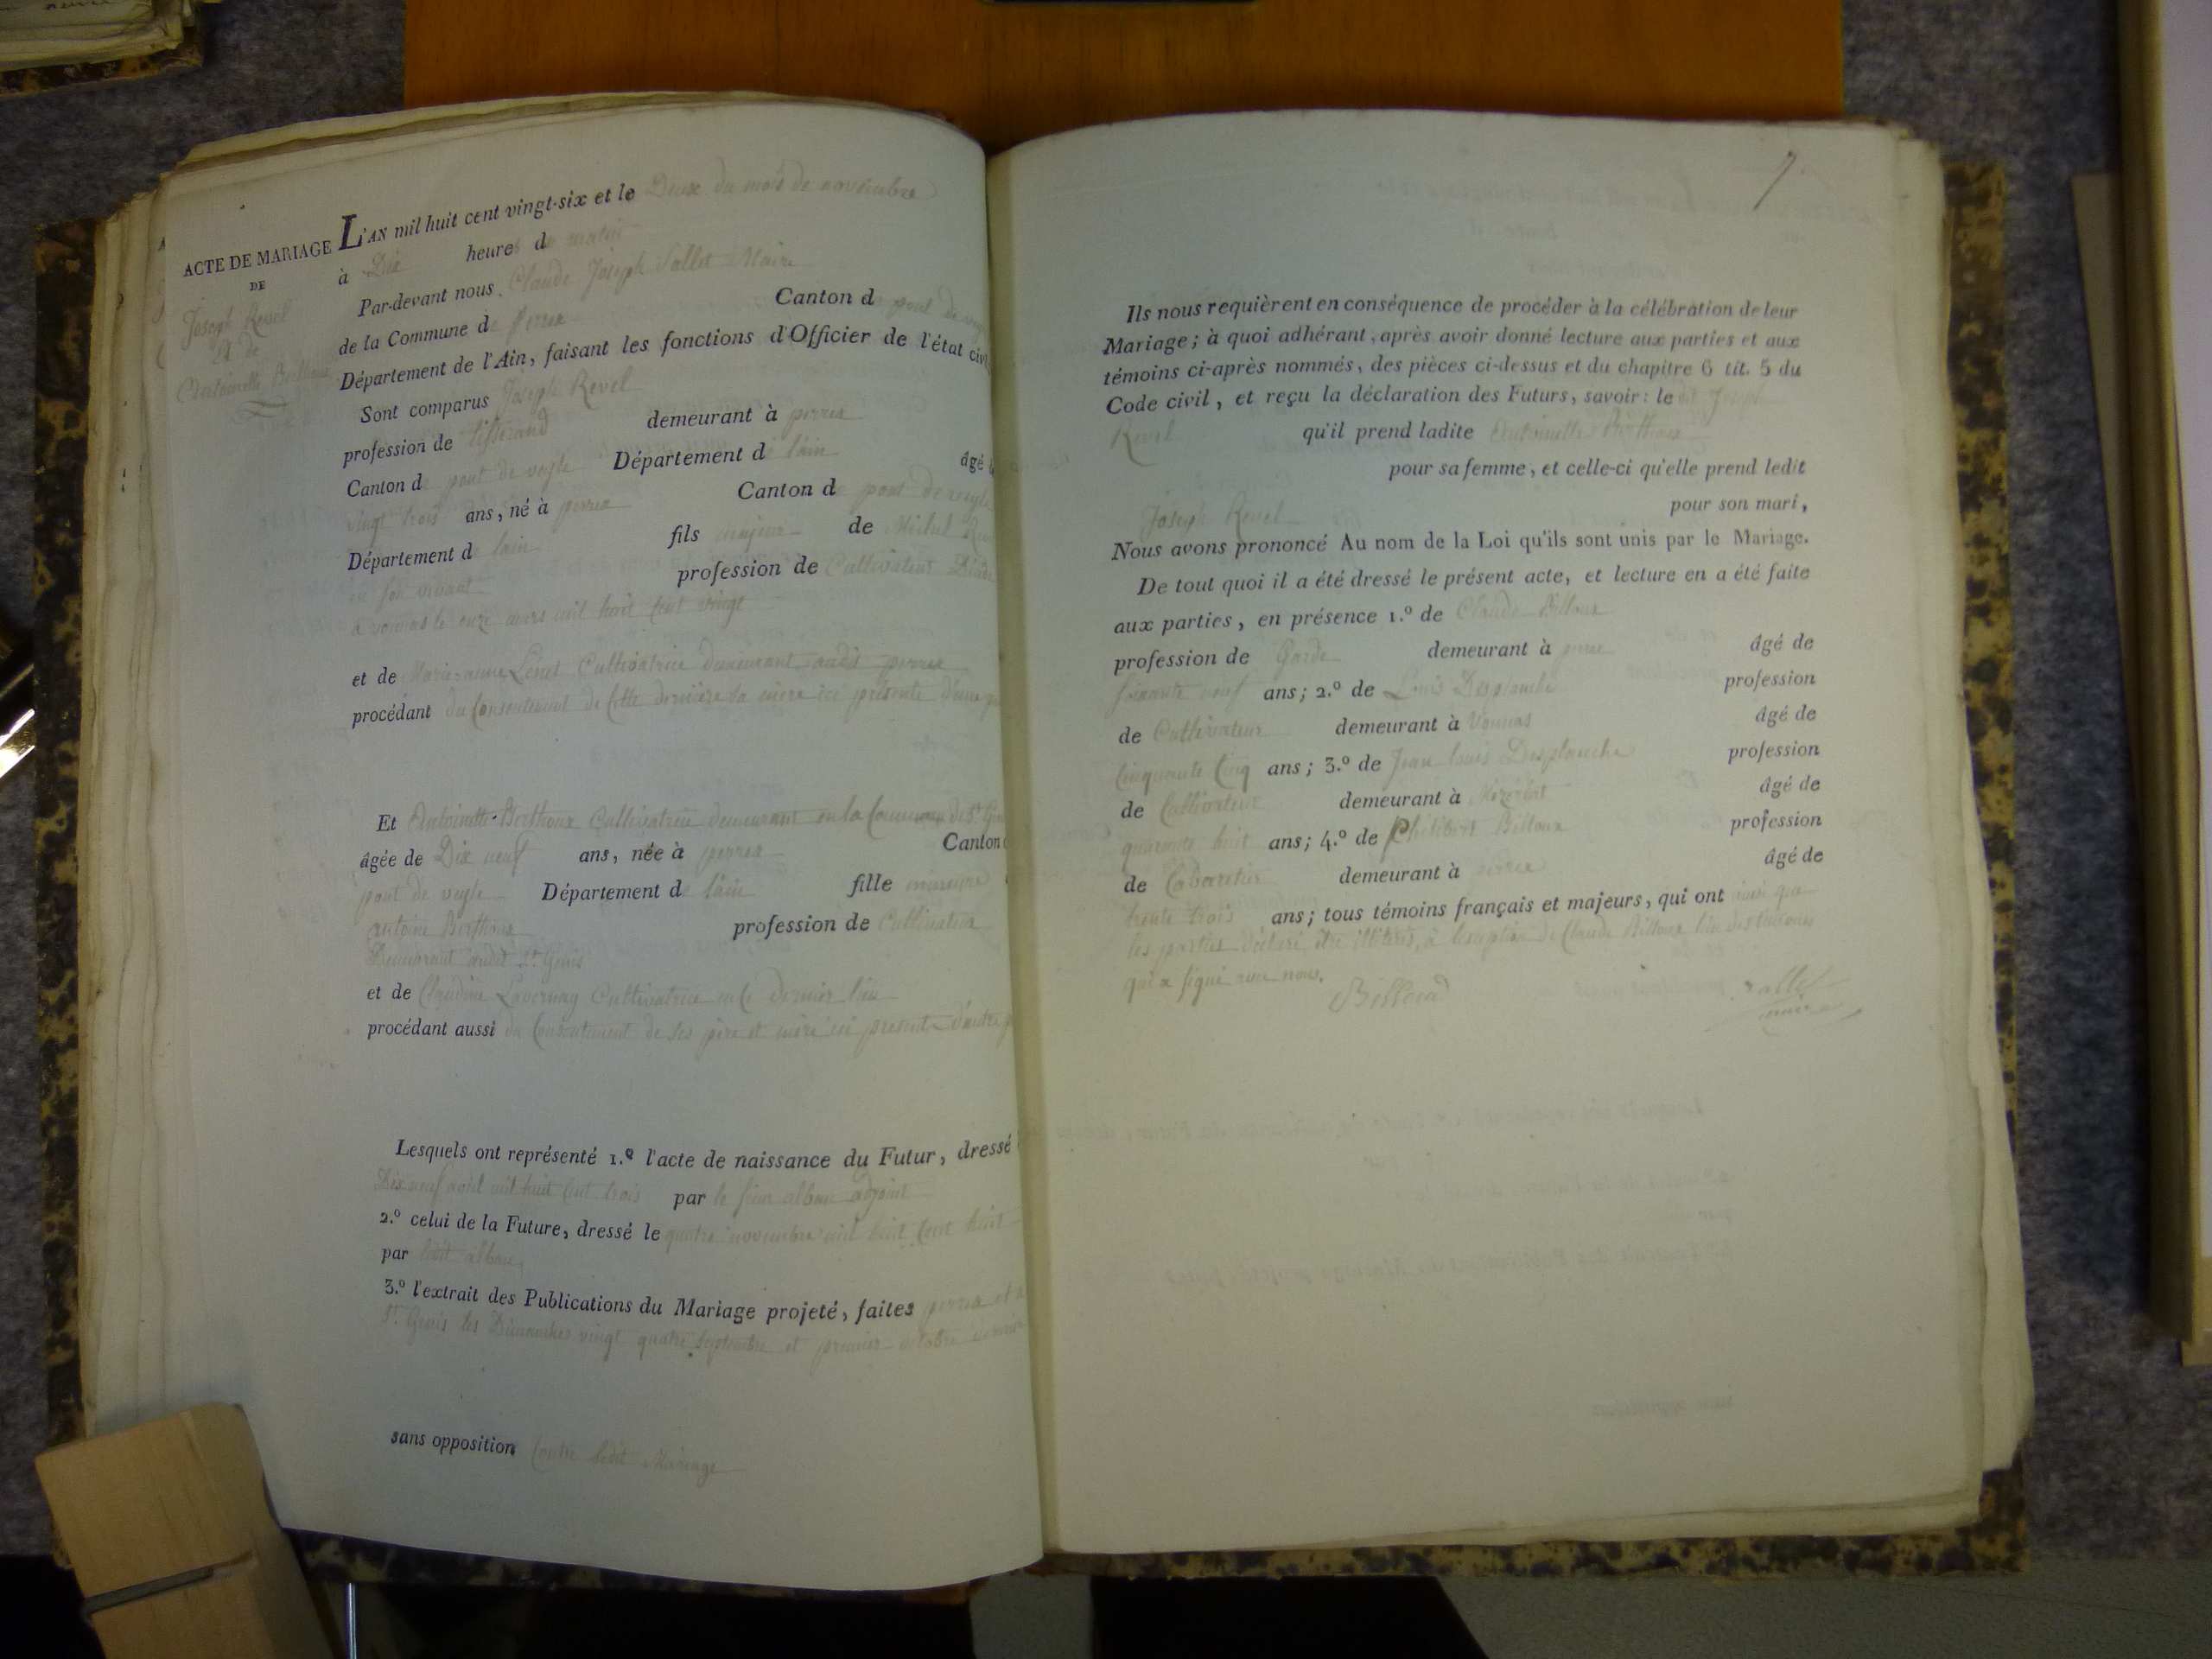 ACTE DE MARIAGE
DE
Joseph Revel
Et de
Antoinette Berthoux
L'AN mil huit cent vingt-six et le Deux du mois de novembre
à Dix heures du matin
Par-devant nous Claude Joseph Sallet Maire
de la Commune de perrex Canton de pont de
Département de l'Ain, faisant les fonctions d'Officier de l'état civ
Sont comparus Joseph Revel
profession de tisserand demeurant à perrex
Canton de pont de veyle Département de l'ain âgé
vingt trois ans, né à perrex Canton de pont de veyle
Département de l'ain fils majeur de Michel
en son vivant profession de Cultivateur Décédé
à vonnas le onze mars mil huit cent vingt
et de Marieanne Cultivatrice demeurant audit perrex
procédant du Consentement de Cette dernière sa mère ici présente d'une
Et Antoinette Berthoux Cultivatrice demeurant en la Commune de St
âgée de Dix neuf ans, née à perrex Canton
pont de veyle Département de l'ain fille mineure
antoine Berthoux profession de Cultivateur
Demeurant audit St Genis
et de Claudine Cultivatrice en ce dernier lieu
procédant aussi du Consentement de ses père et mère ici présents d'autre
Lesquels ont représenté 1.º l'acte de naissance du Futur, dressé
Dix neuf août mil huit cent trois par le sieur alban adjoint
2.º celui de la Future, dressé le quatre novembre mil huit cent huit
par ledit alban
3.º l'extrait des Publications du Mariage projeté, faites perrex et
St Genis les Dimanches vingt quatre septembre et premier octobre
sans opposition Contre ledit Mariage
7
Ils nous requièrent en conséquence de procéder à la célébration de leur
Mariage; à quoi adhérant, après avoir donné lecture aux parties et aux
témoins ci-après nommés, des pièces ci-dessus et du chapitre 6 tit. 5 du
Code civil, et reçu la déclaration des Futurs, savoir: ledit Joseph
Revel qu'il prend ladite Antoinette Berthoux
pour sa femme, et celle-ci qu'elle prend ledit
Joseph Revel pour son mari,
Nous avons prononcé Au nom de la Loi qu'ils sont unis par le Mariage.
De tout quoi il a été dressé le présent acte, et lecture en a été faite
aux parties, en présence 1.º de Claude Billoux
profession de Garde demeurant à perrex âgé de
soixante neuf ans; 2.º de Louis Desplanche profession
de Cultivateur demeurant à Vonnas âgé de
Cinquante Cinq ans; 3.º de Jean louis Desplanche profession
de Cultivateur demeurant à Mézériat âgé de
quarante huit ans; 4.º de Philibert Billoux profession
de Cabaretier demeurant à perrex âgé de
trente trois ans; tous témoins français et majeurs, qui ont ainsi que
les parties déclaré être illitérés, à l'exception de Claude Billoux l'un des témoins
qui a signé avec nous.
Billoud
Sallet
maire